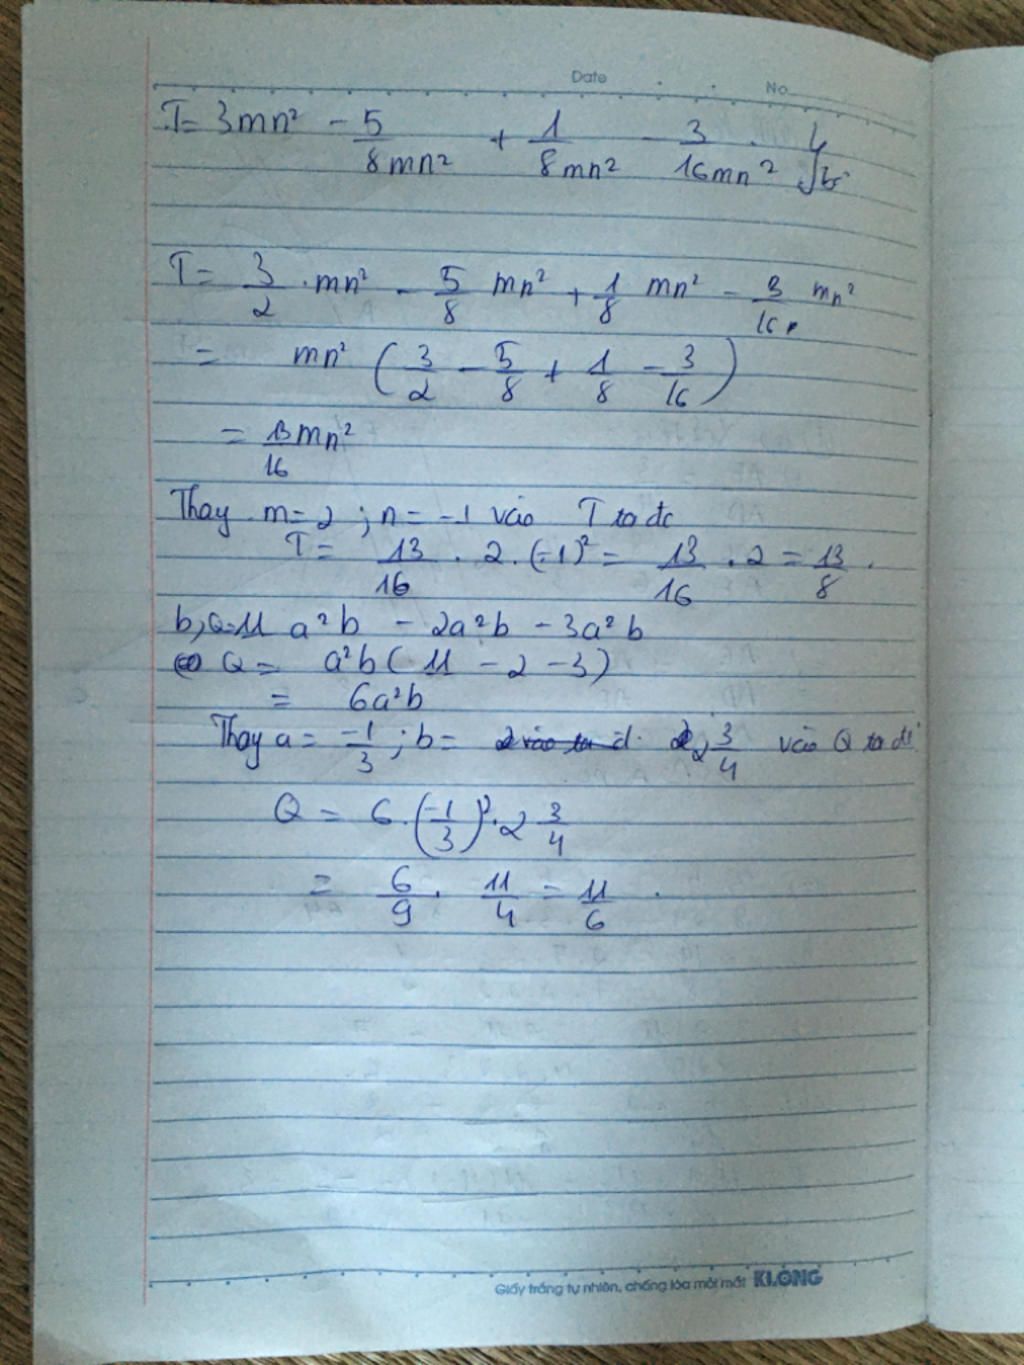 Date No
T = 3mn² - 5/8mn² + 1/8mn² - 3/16mn²
T = 3/2 . mn² - 5/8 mn² + 1/8 mn² - 3/16 mn²
= mn² (3/2 - 5/8 + 1/8 - 3/16)
= 13/16 mn²
Thay m = 2 ; n = -1 vào T ta đc
T = 13/16 . 2 . (-1)² = 13/16 . 2 = 13/8 .
b, Q = 11 a²b - 2a²b - 3a²b
Q = a²b ( 11 - 2 - 3 )
= 6a²b
Thay a = -1/3 ; b = 2 3/4 vào Q ta đc
Q = 6 . (-1/3)² . 2 3/4
= 6/9 . 11/4 = 11/6 .
Giấy trắng tự nhiên, chống lóa mỏi mắt KLONG